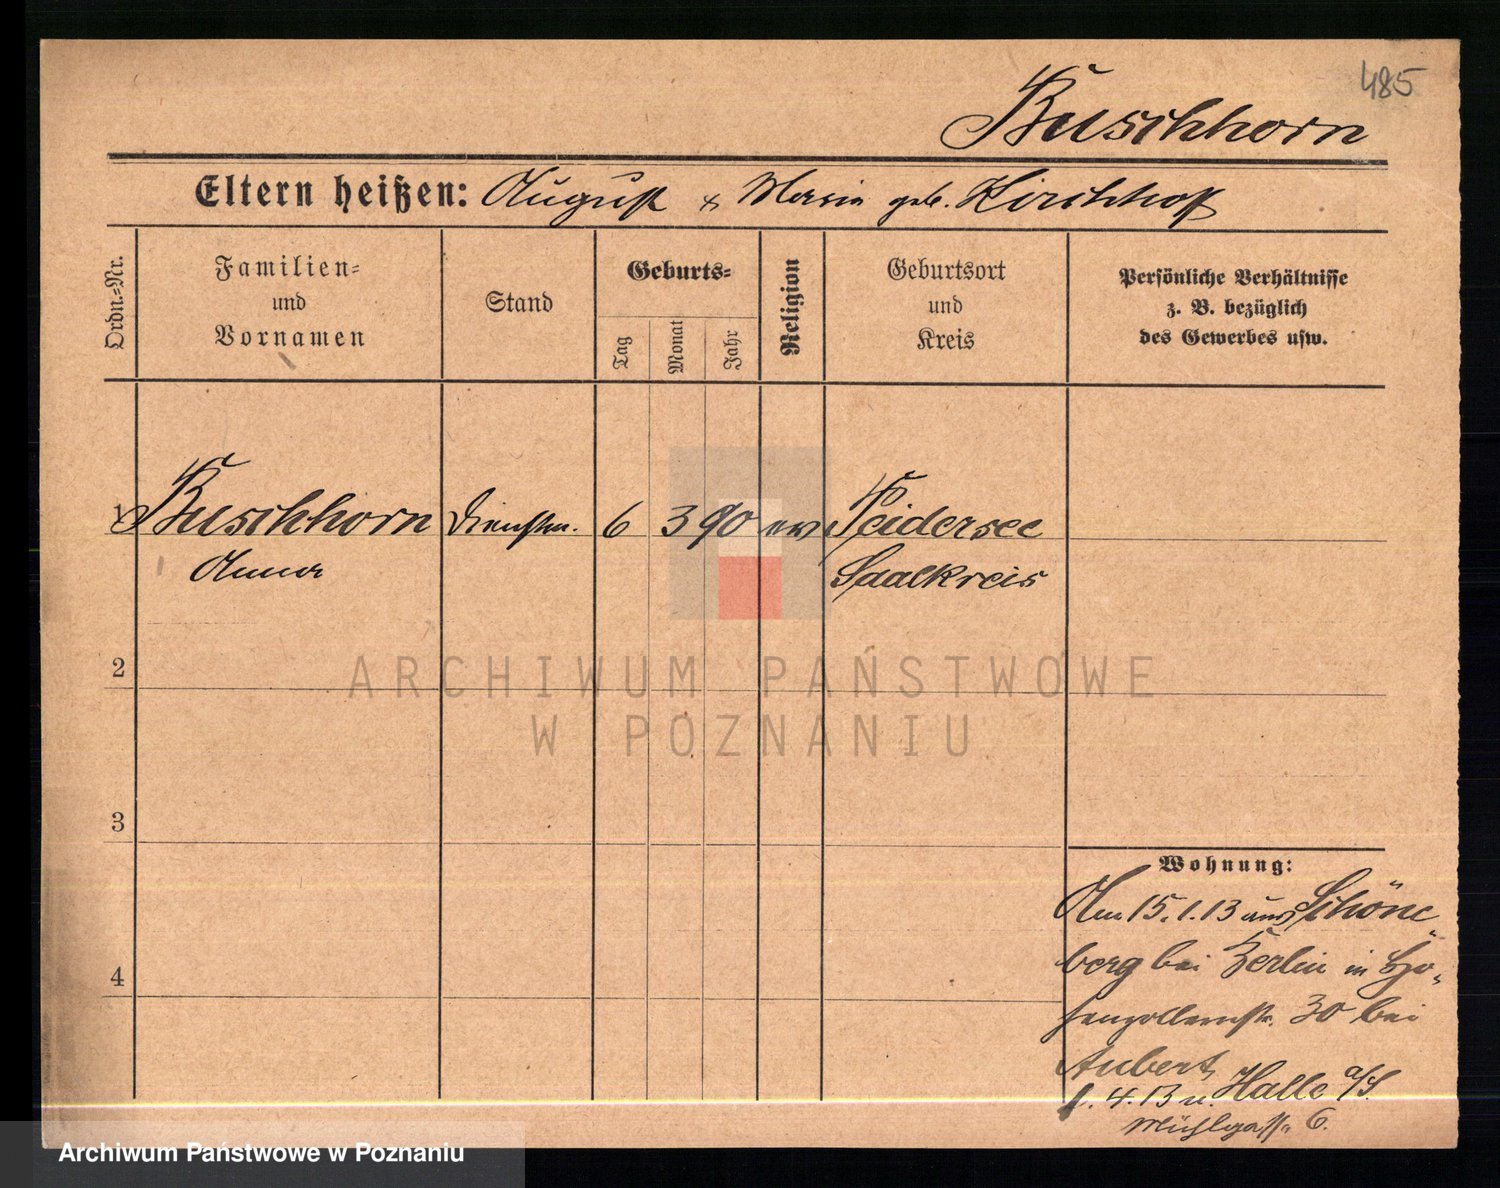 485
Buschhorn
Eltern heißen: August & Maria geb. Kirchhoff
Ordn.-Nr.
Familien- und Vornamen
Stand
Geburts-
Tag
Monat
Jahr
Religion
Geburtsort und Kreis
Persönliche Verhältnisse
z. B. bezüglich
des Gewerbes usw.
1 Buschhorn Dienstm. 6 3 90 ev Teidersee
Anna Saalkreis
2
3
4
Wohnung:
Am 15.1.13 aus Schöne-
berg bei Berlin in Ho-
henzollernstr. 30 bei
Aubert
1.4.13 n. Halle a/S.
Mühlgasse 6.
ARCHIWUM PAŃSTWOWE
W POZNANIU
Archiwum Państwowe w Poznaniu